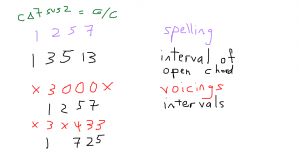 C△7sus2 = G/C
1 2 5 7 spelling
1 3 5 13 interval of open chord
x 3 0 0 0 x voicings
1 2 5 7 intervals
x 3 x 4 3 3
1 7 2 5